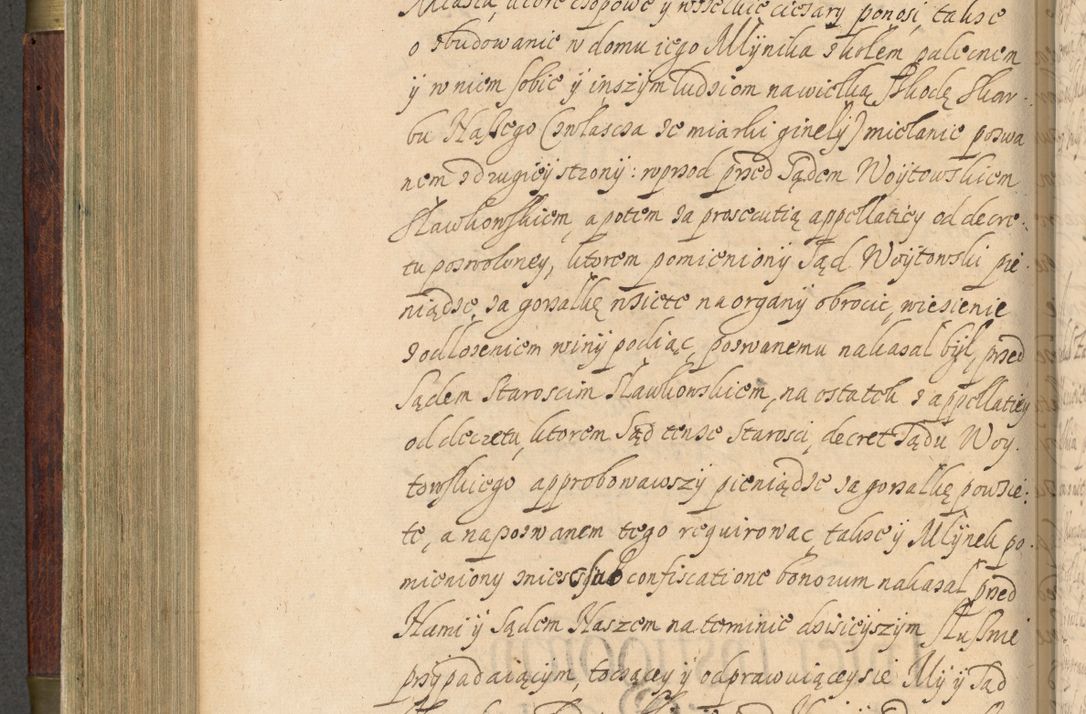 Miasta, ktore czopowe y wszelkie ciężary ponosi, takze
o zbudowanie w domu iego Młynika z kołem palecznem
ÿ w niem sobie ÿ inszÿm ludziom na wielką szkodę Skar-
bu Naszego (zwłascza ze miarki ginęłÿ) miełanie pozwa
nem z drugieÿ stronÿ: wprzod przed Sądem Woÿtowskiem
Sławkowskiem, a potem za prosecutią appellatiey od decre-
tu pozwoloney, ktorem pomienionÿ Sąd Woÿtowski pie-
niądze, za gorzałkę wziete na organÿ obrocic, wiezienie
z odłozeniem winÿ podiąc, pozwanemu nakazał bÿł, przed
Sądem Staroscim Sławkowskiem, na ostatek z appellatieÿ
od decretu, ktorem Sąd tenze Starosci, decret Sądu Woy-
towskiego approbowawszy pieniądze za gorzałkę powzie-
te, a na pozwanem tego requirowac, takze ÿ Młÿnek po-
mieniony zniesc sub confiscatione bonorum nakazał przed
Nami ÿ Sądem Naszem na terminie dzisieÿszÿm słusznie
przÿpadaiącÿm, toczącey ÿ odprawuiąceÿ sie Mÿ ÿ Sąd